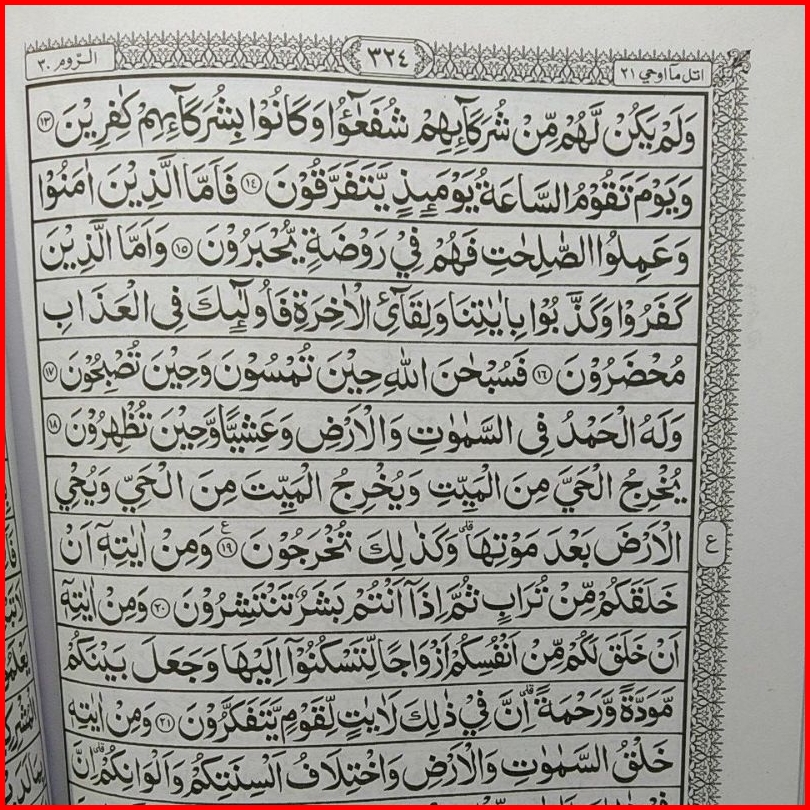 اتل ما اوحي ٢١
٣٢٤
الروم ٣٠
وَلَمْ يَكُنْ لَّهُمْ مِّنْ شُرَكَآئِهِمْ شُفَعٰٓؤُا وَكَانُوْا بِشُرَكَآئِهِمْ كٰفِرِيْنَ ۝١٣
وَيَوْمَ تَقُوْمُ السَّاعَةُ يَوْمَئِذٍ يَّتَفَرَّقُوْنَ ۝١٤ فَاَمَّا الَّذِيْنَ اٰمَنُوْا
وَعَمِلُوا الصّٰلِحٰتِ فَهُمْ فِيْ رَوْضَةٍ يُّحْبَرُوْنَ ۝١٥ وَاَمَّا الَّذِيْنَ
كَفَرُوْا وَكَذَّبُوْا بِاٰيٰتِنَا وَلِقَآئِ الْاٰخِرَةِ فَاُولٰٓئِكَ فِى الْعَذَابِ
مُحْضَرُوْنَ ۝١٦ فَسُبْحٰنَ اللّٰهِ حِيْنَ تُمْسُوْنَ وَحِيْنَ تُصْبِحُوْنَ ۝١٧
وَلَهُ الْحَمْدُ فِى السَّمٰوٰتِ وَالْاَرْضِ وَعَشِيًّا وَّحِيْنَ تُظْهِرُوْنَ ۝١٨
يُخْرِجُ الْحَيَّ مِنَ الْمَيِّتِ وَيُخْرِجُ الْمَيِّتَ مِنَ الْحَيِّ وَيُحْيِ
الْاَرْضَ بَعْدَ مَوْتِهَا ۗ وَكَذٰلِكَ تُخْرَجُوْنَ ۝١٩ ع وَمِنْ اٰيٰتِهٖٓ اَنْ
ع
خَلَقَكُمْ مِّنْ تُرَابٍ ثُمَّ اِذَآ اَنْتُمْ بَشَرٌ تَنْتَشِرُوْنَ ۝٢٠ وَمِنْ اٰيٰتِهٖٓ
اَنْ خَلَقَ لَكُمْ مِّنْ اَنْفُسِكُمْ اَزْوَاجًا لِّتَسْكُنُوْٓا اِلَيْهَا وَجَعَلَ بَيْنَكُمْ
مَّوَدَّةً وَّرَحْمَةً ۗ اِنَّ فِيْ ذٰلِكَ لَاٰيٰتٍ لِّقَوْمٍ يَّتَفَكَّرُوْنَ ۝٢١ وَمِنْ اٰيٰتِهٖ
خَلْقُ السَّمٰوٰتِ وَالْاَرْضِ وَاخْتِلَافُ اَلْسِنَتِكُمْ وَاَلْوَانِكُمْ ۗ اِنَّ